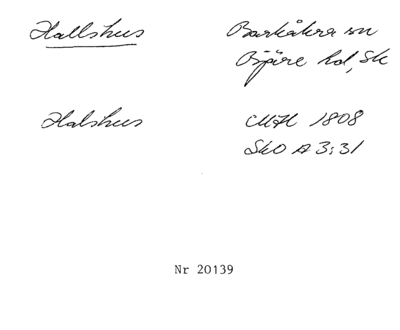 Hallshus
Barkåkra sn
Bjäre hd, Sk
Halshus
CMH 1808
SkO A 3:31
Nr 20139